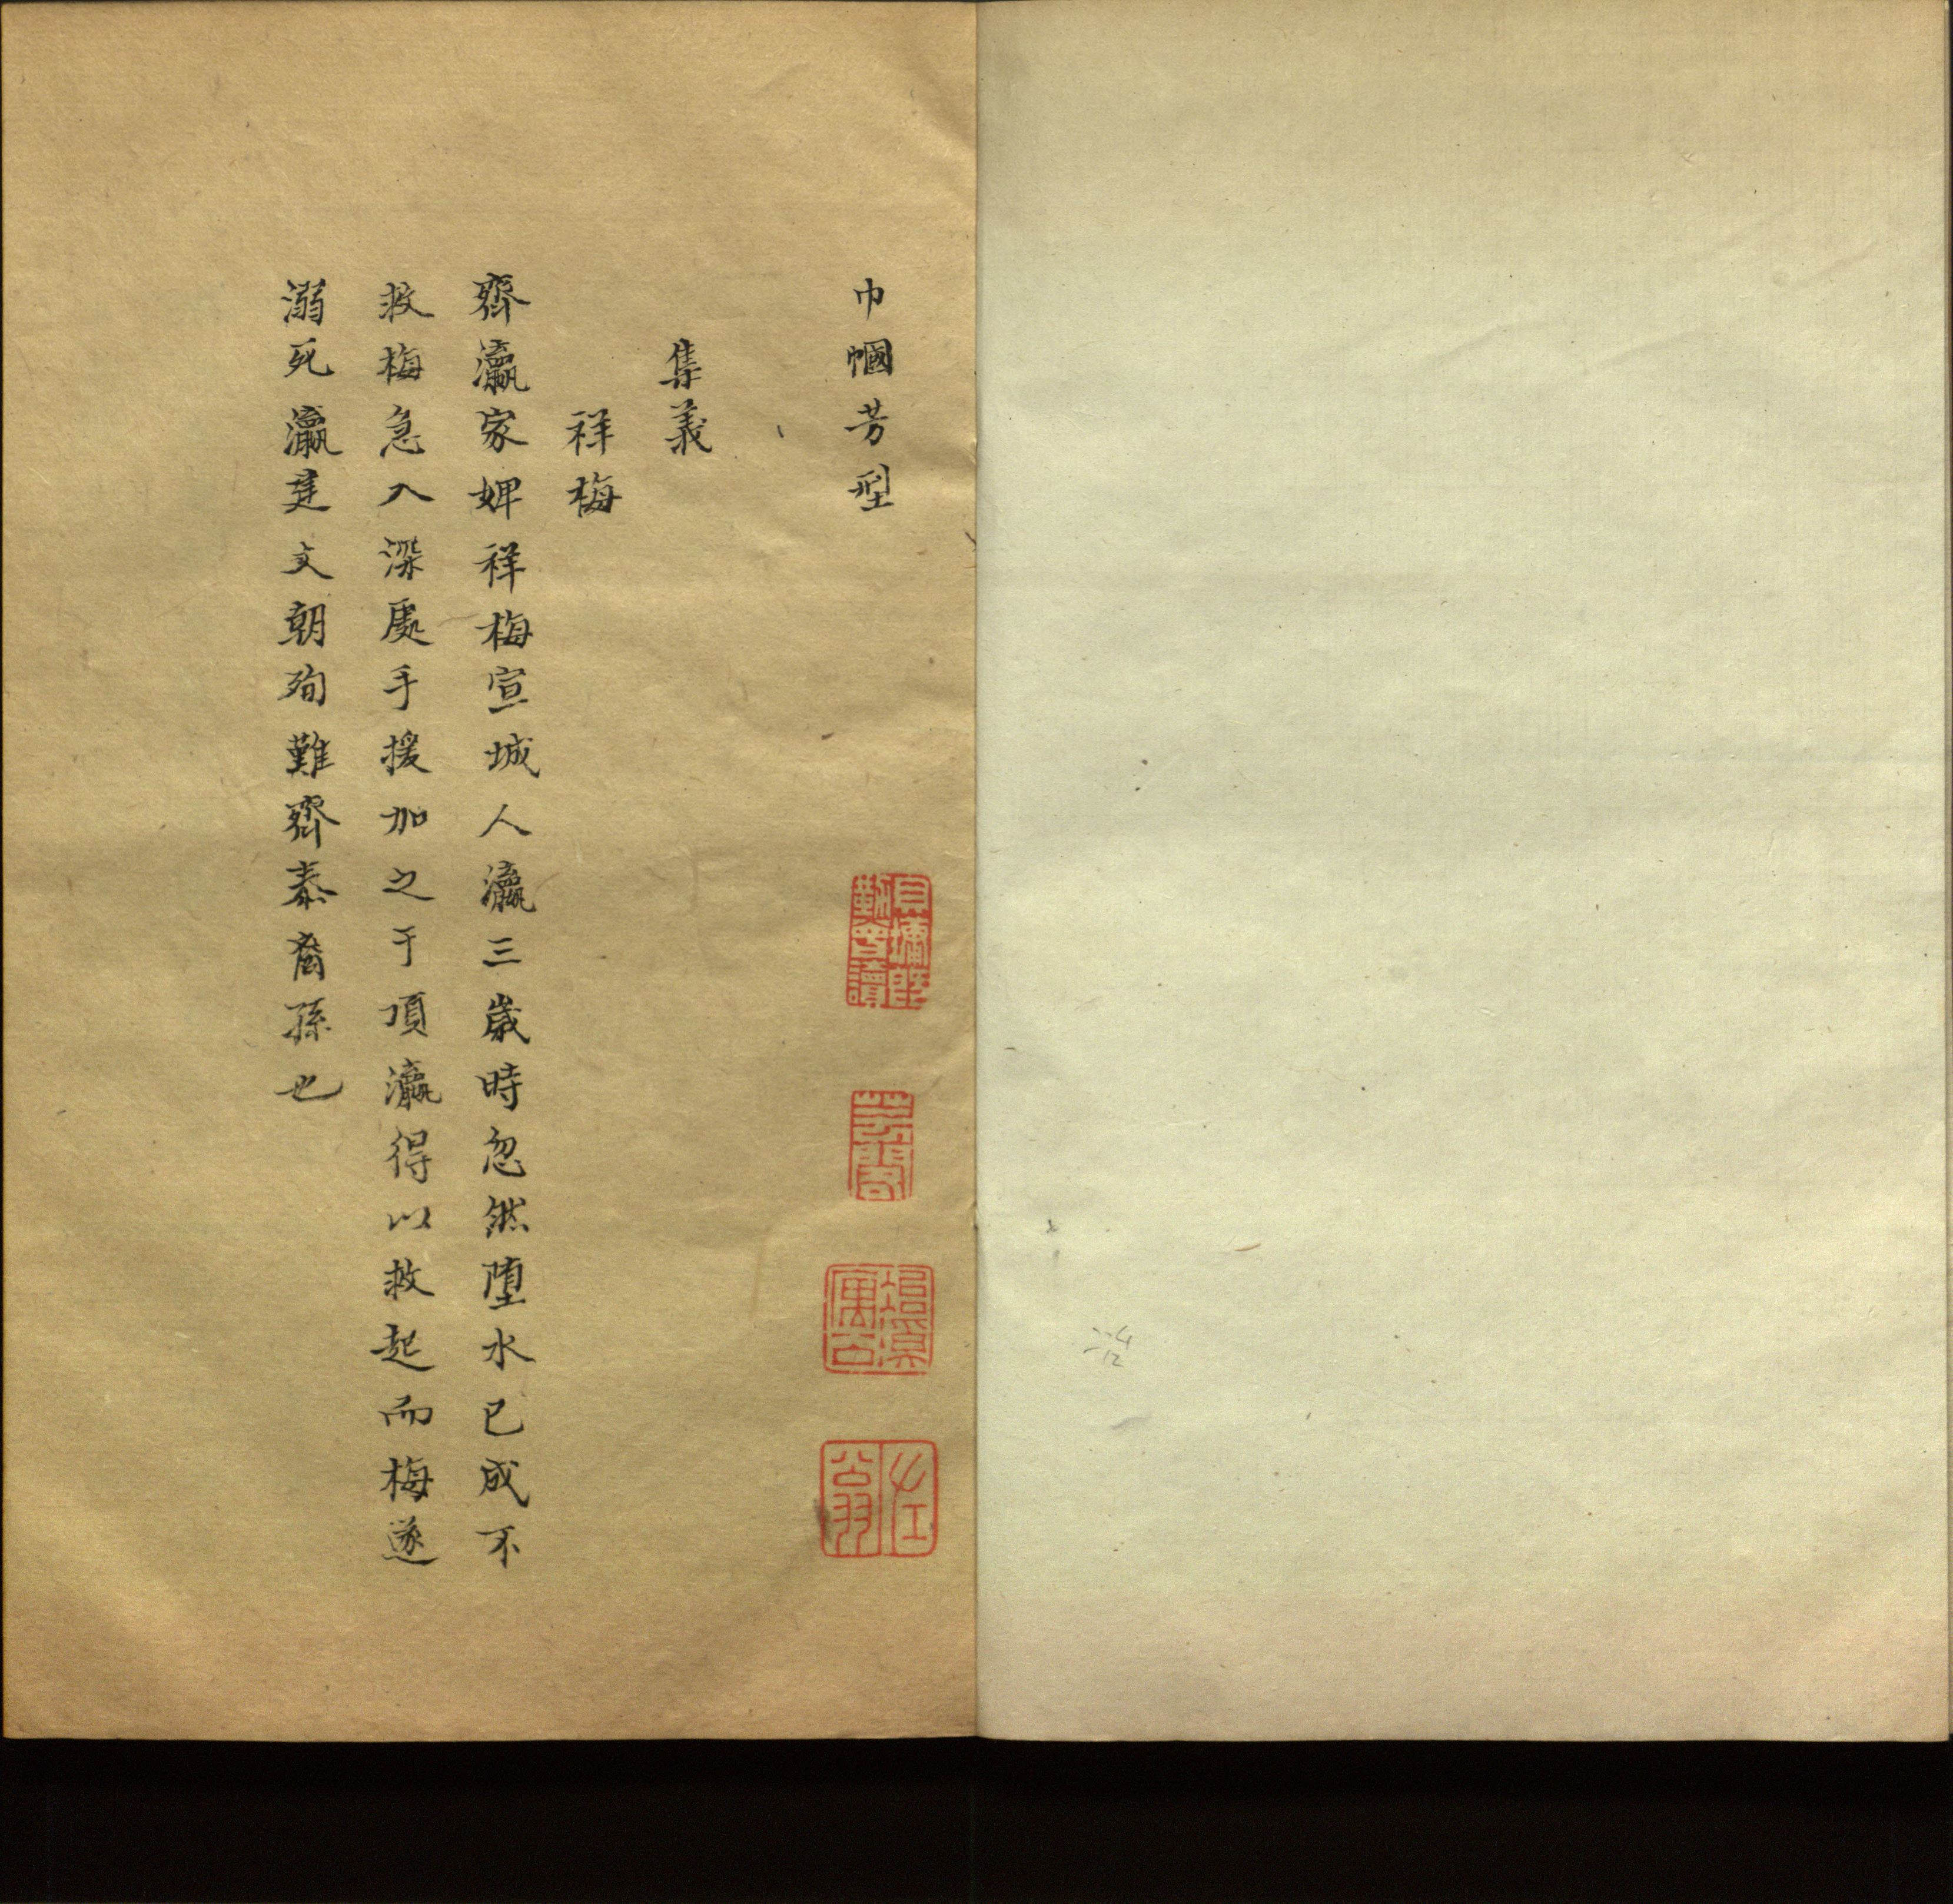 巾幗芳型
集義
祥梅
齊瀛家婢祥梅宣城人瀛三歲時忽然墮水已成不
救梅急入深處手援加之于頂瀛得以救起而梅遂
溺死瀛建文朝殉難齊泰裔孫也
貝墉所
勘曾讀
左
翁